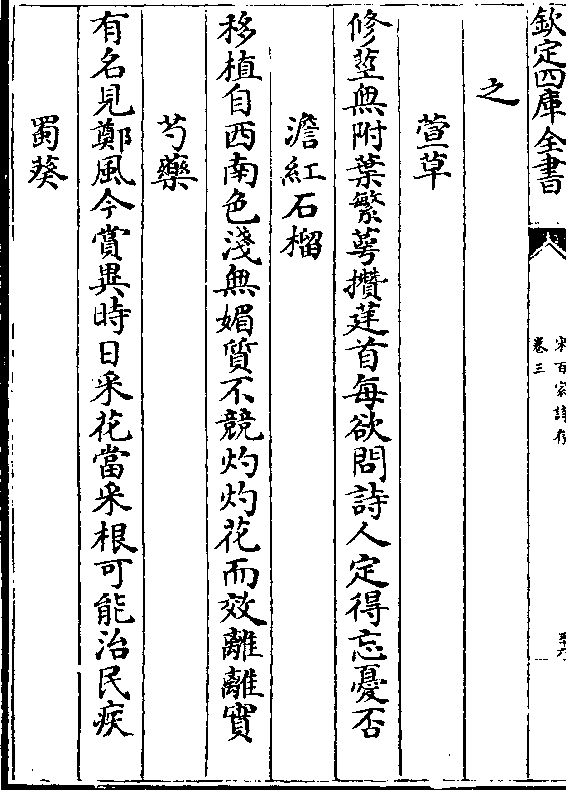 欽定四庫全書
卷三
之
萱草
修莖無附葉繁萼攢莲首每欲問詩人定得忘憂否
澹紅石榴
移植自西南色淺無媚質不競灼灼花而效離離實
芍藥
有名見鄭風今賞異時日采花當采根可能治民疾
蜀葵